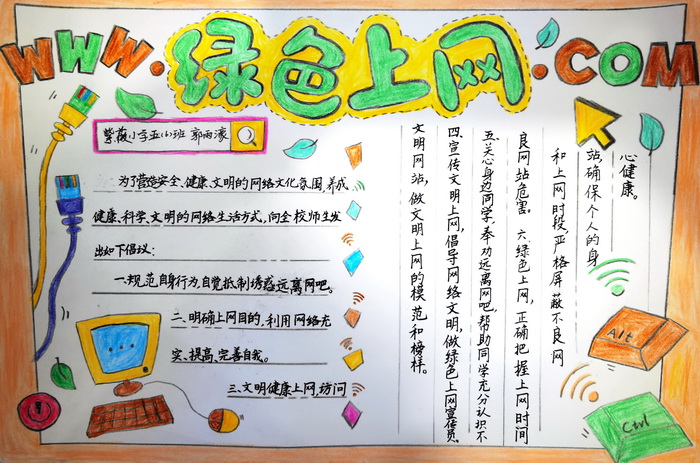 WWW.绿色上网.COM
紫薇小学五(6)班 郭雨
为了营造安全、健康、文明的网络文化氛围,养成
健康、科学、文明的网络生活方式,向全校师生发
出如下倡议:
一.规范自身行为,自觉抵制诱惑,远离网吧。
二.明确上网目的,利用网络充
实、提高、完善自我。
三.文明健康上网,访问
文明网站,做文明上网的模范和榜样。
四.宣传文明上网,倡导网络文明,做绿色上网宣传员。
五.关心身边同学,奉劝远离网吧,帮助同学充分认识不
良网站危害。六.绿色上网,正确把握上网时间
和上网时段,严格屏蔽不良网
站,确保个人的身
心健康。
Alt
Ctrl